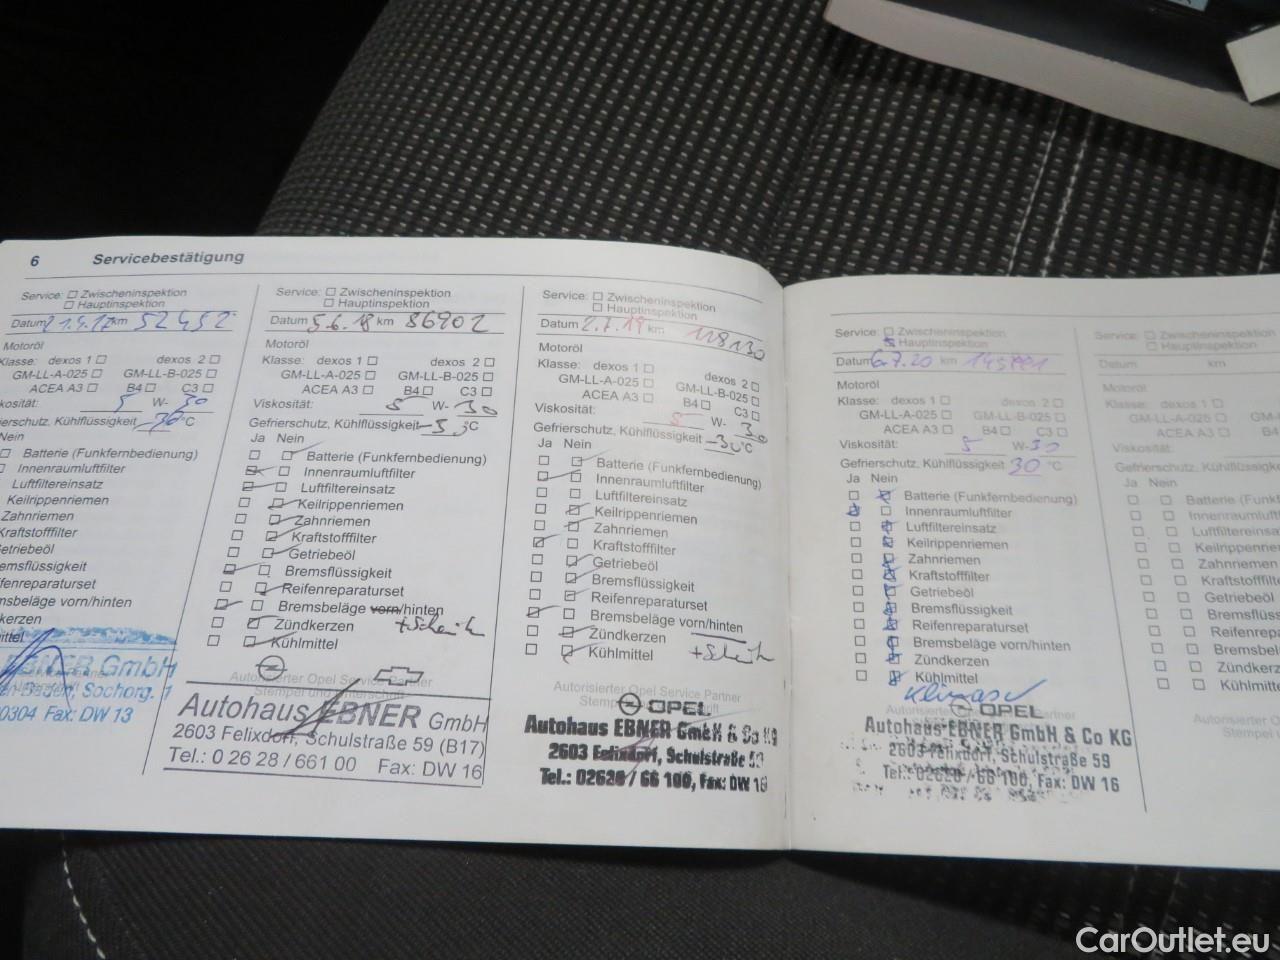 6 Servicebestätigung
Service: Zwischeninspektion
Hauptinspektion
Datum 21.4.17 km 52452
Motoröl
Klasse: dexos 1 dexos 2
GM-LL-A-025 GM-LL-B-025
ACEA A3 B4 C3
skosität: 5 W- 30
efrierschutz, Kühlflüssigkeit -30 °C
Nein
Batterie (Funkfernbedienung)
Innenraumluftfilter
Luftfiltereinsatz
Keilrippenriemen
Zahnriemen
Kraftstofffilter
Getriebeöl
emsflüssigkeit
ifenreparaturset
msbeläge vorn/hinten
kerzen
ittel
EBNER GmbH
en-Baden, Sochorg. 1
0304 Fax: DW 13
Service: Zwischeninspektion
Hauptinspektion
Datum 5.6.18 km 86902
Motoröl
Klasse: dexos 1 dexos 2
GM-LL-A-025 GM-LL-B-025
ACEA A3 B4 C3
Viskosität: 5 W- 30
Gefrierschutz, Kühlflüssigkeit °C
Ja Nein
Batterie (Funkfernbedienung)
Innenraumluftfilter
Luftfiltereinsatz
Keilrippenriemen
Zahnriemen
Kraftstofffilter
Getriebeöl
Bremsflüssigkeit
Reifenreparaturset
Bremsbeläge vorn/hinten
Zündkerzen
Kühlmittel
Autorisierter Opel Service Partner
Stempel und Unterschrift
Autohaus EBNER GmbH
2603 Felixdorf, Schulstraße 59 (B17)
Tel.: 0 26 28 / 661 00 Fax: DW 16
Service: Zwischeninspektion
Hauptinspektion
Datum 2.7.19 km 118130
Motoröl
Klasse: dexos 1 dexos 2
GM-LL-A-025 GM-LL-B-025
ACEA A3 B4 C3
Viskosität: 5 W- 30
Gefrierschutz, Kühlflüssigkeit -30 °C
Ja Nein
Batterie (Funkfernbedienung)
Innenraumluftfilter
Luftfiltereinsatz
Keilrippenriemen
Zahnriemen
Kraftstofffilter
Getriebeöl
Bremsflüssigkeit
Reifenreparaturset
Bremsbeläge vorn/hinten
Zündkerzen
Kühlmittel
Autorisierter Opel Service Partner
OPEL
Autohaus EBNER GmbH & Co KG
2603 Felixdorf, Schulstraße 59
Tel.: 02628 / 66 100, Fax: DW 16
Service: Zwischeninspektion
Hauptinspektion
Datum 6.7.20 km
Motoröl
Klasse: dexos 1 dexos 2
GM-LL-A-025 GM-LL-B-025
ACEA A3 B4 C3
Viskosität: 5 W- 30
Gefrierschutz, Kühlflüssigkeit 30 °C
Ja Nein
Batterie (Funkfernbedienung)
Innenraumluftfilter
Luftfiltereinsatz
Keilrippenriemen
Zahnriemen
Kraftstofffilter
Getriebeöl
Bremsflüssigkeit
Reifenreparaturset
Bremsbeläge vorn/hinten
Zündkerzen
Kühlmittel
OPEL
Autohaus EBNER GmbH & Co KG
2603 Felixdorf, Schulstraße 59
Tel.: 02628 / 66 100, Fax: DW 16
Service: Zwischeninspektion
Hauptinspektion
Datum km
Motoröl
Klasse: dexos 1 dexos 2
GM-LL-A-025 GM-LL-B
ACEA A3 B4 C3
Viskosität: W-
Gefrierschutz, Kühlflüssigkeit
Ja Nein
Batterie (Funk
Innenraumluft
Luftfiltereinsa
Keilrippenrieme
Zahnriemen
Kraftstofffilter
Getriebeöl
Bremsflüss
Reifenrepara
Bremsbel
Zündkerze
Kühlmitte
Autorisierter O
Stempel u
CarOutlet.eu